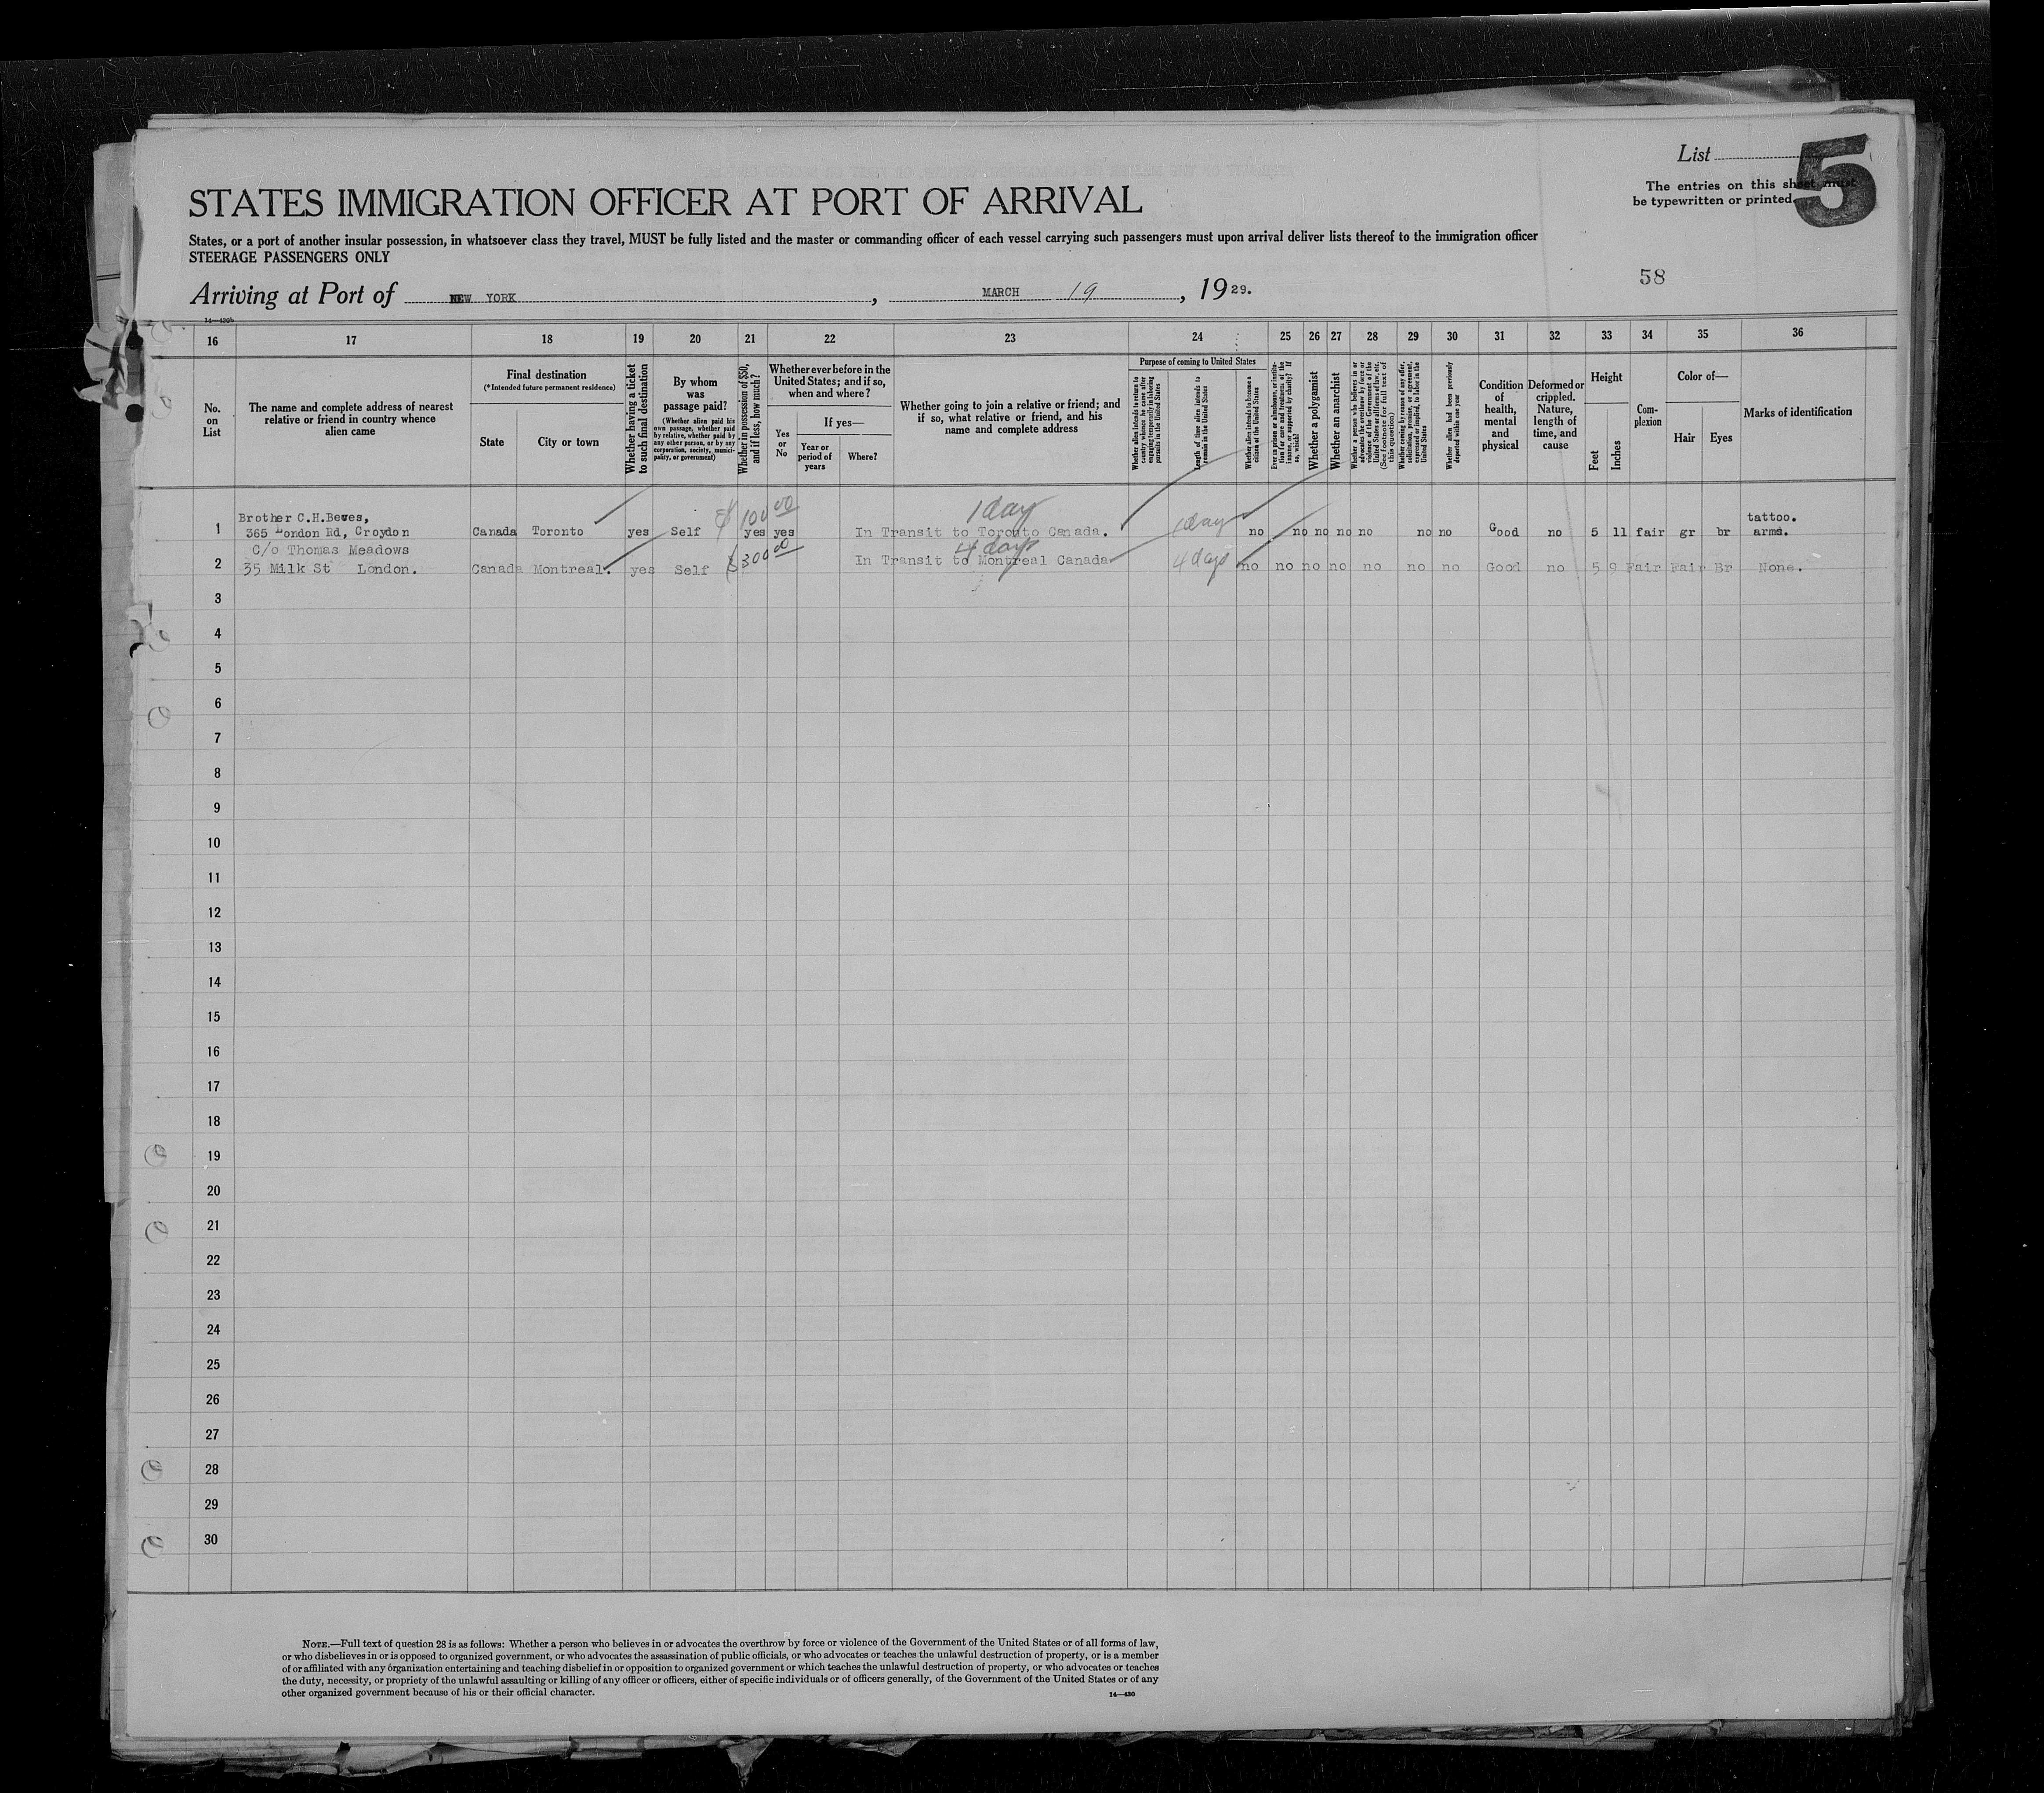 List
5
The entries on this sheet must
be typewritten or printed
STATES IMMIGRATION OFFICER AT PORT OF ARRIVAL
States, or a port of another insular possession, in whatsoever class they travel, MUST be fully listed and the master or commanding officer of each vessel carrying such passengers must upon arrival deliver lists thereof to the immigration officer
STEERAGE PASSENGERS ONLY
58
Arriving at Port of NEW YORK, MARCH 19, 1929.
14—430b
16 17 18 19 20 21 22 23 24 25 26 27 28 29 30 31 32 33 34 35 36
No. on List
The name and complete address of nearest relative or friend in country whence alien came
Final destination
(*Intended future permanent residence)
State
City or town
Whether having a ticket to such final destination
By whom was passage paid?
(Whether alien paid his own passage, whether paid by relative, whether paid by any other person, or by any corporation, society, municipality, or government)
Whether in possession of $50, and if less, how much?
Whether ever before in the United States; and if so, when and where?
Yes or No
If yes—
Year or period of years
Where?
Whether going to join a relative or friend; and if so, what relative or friend, and his name and complete address
Purpose of coming to United States
Whether alien intends to return to country whence he came after engaging temporarily in laboring pursuits in the United States
Length of time alien intends to remain in the United States
Whether alien intends to become a citizen of the United States
Ever in prison or almshouse, or institution for care and treatment of the insane, or supported by charity? If so, which?
Whether a polygamist
Whether an anarchist
Whether a person who believes in or advocates the overthrow by force or violence of the Government of the United States or all forms of law, etc. (See footnote for full text of this question)
Whether coming by reason of any offer, solicitation, promise, or agreement, expressed or implied, to labor in the United States
Whether alien had been previously deported within one year
Condition of health, mental and physical
Deformed or crippled. Nature, length of time, and cause
Height
Feet
Inches
Complexion
Color of—
Hair
Eyes
Marks of identification
$100 00 1 day
Brother C.H.Beves, tattoo.
1 365 London Rd, Croydon Canada Toronto yes Self yes yes In Transit to Toronto Canada. 1 day no no no no no no no Good no 5 11 fair gr br arms.
C/o Thomas Meadows $300 00 4 days
2 35 Milk St London. Canada Montreal. yes Self In Transit to Montreal Canada 4 days no no no no no no no Good no 5 9 Fair Fair Br None.
3
4
5
6
7
8
9
10
11
12
13
14
15
16
17
18
19
20
21
22
23
24
25
26
27
28
29
30
NOTE.—Full text of question 28 is as follows: Whether a person who believes in or advocates the overthrow by force or violence of the Government of the United States or of all forms of law,
or who disbelieves in or is opposed to organized government, or who advocates the assassination of public officials, or who advocates or teaches the unlawful destruction of property, or is a member
of or affiliated with any organization entertaining and teaching disbelief in or opposition to organized government or which teaches the unlawful destruction of property, or who advocates or teaches
the duty, necessity, or propriety of the unlawful assaulting or killing of any officer or officers, either of specific individuals or of officers generally, of the Government of the United States or of any
other organized government because of his or their official character.
14—430